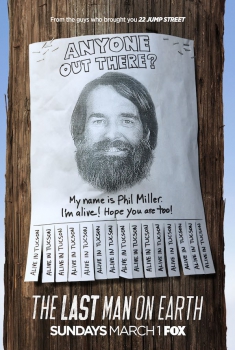 From the guys who brought you 22 JUMP STREET
ANYONE
OUT THERE?
My name is Phil Miller.
I'm alive! Hope you are too!
ALIVE IN TUCSON
ALIVE IN TUCSON
ALIVE IN TUCSON
ALIVE IN TUCSON
ALIVE IN TUCSON
ALIVE IN TUCSON
ALIVE IN TUCSON
ALIVE IN TUCSON
ALIVE IN TUCSON
ALIVE IN TUCSON
ALIVE IN TUCSON
ALIVE IN TUCSON
ALIVE IN TUCSON
ALIVE IN TUCSON
THE LAST MAN ON EARTH
SUNDAYS MARCH 1 FOX